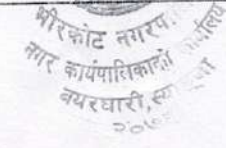 भीरकोट नगरप
नगर कार्यपालिकाको कार्यालय
बयरघारी, स्याङ्जा